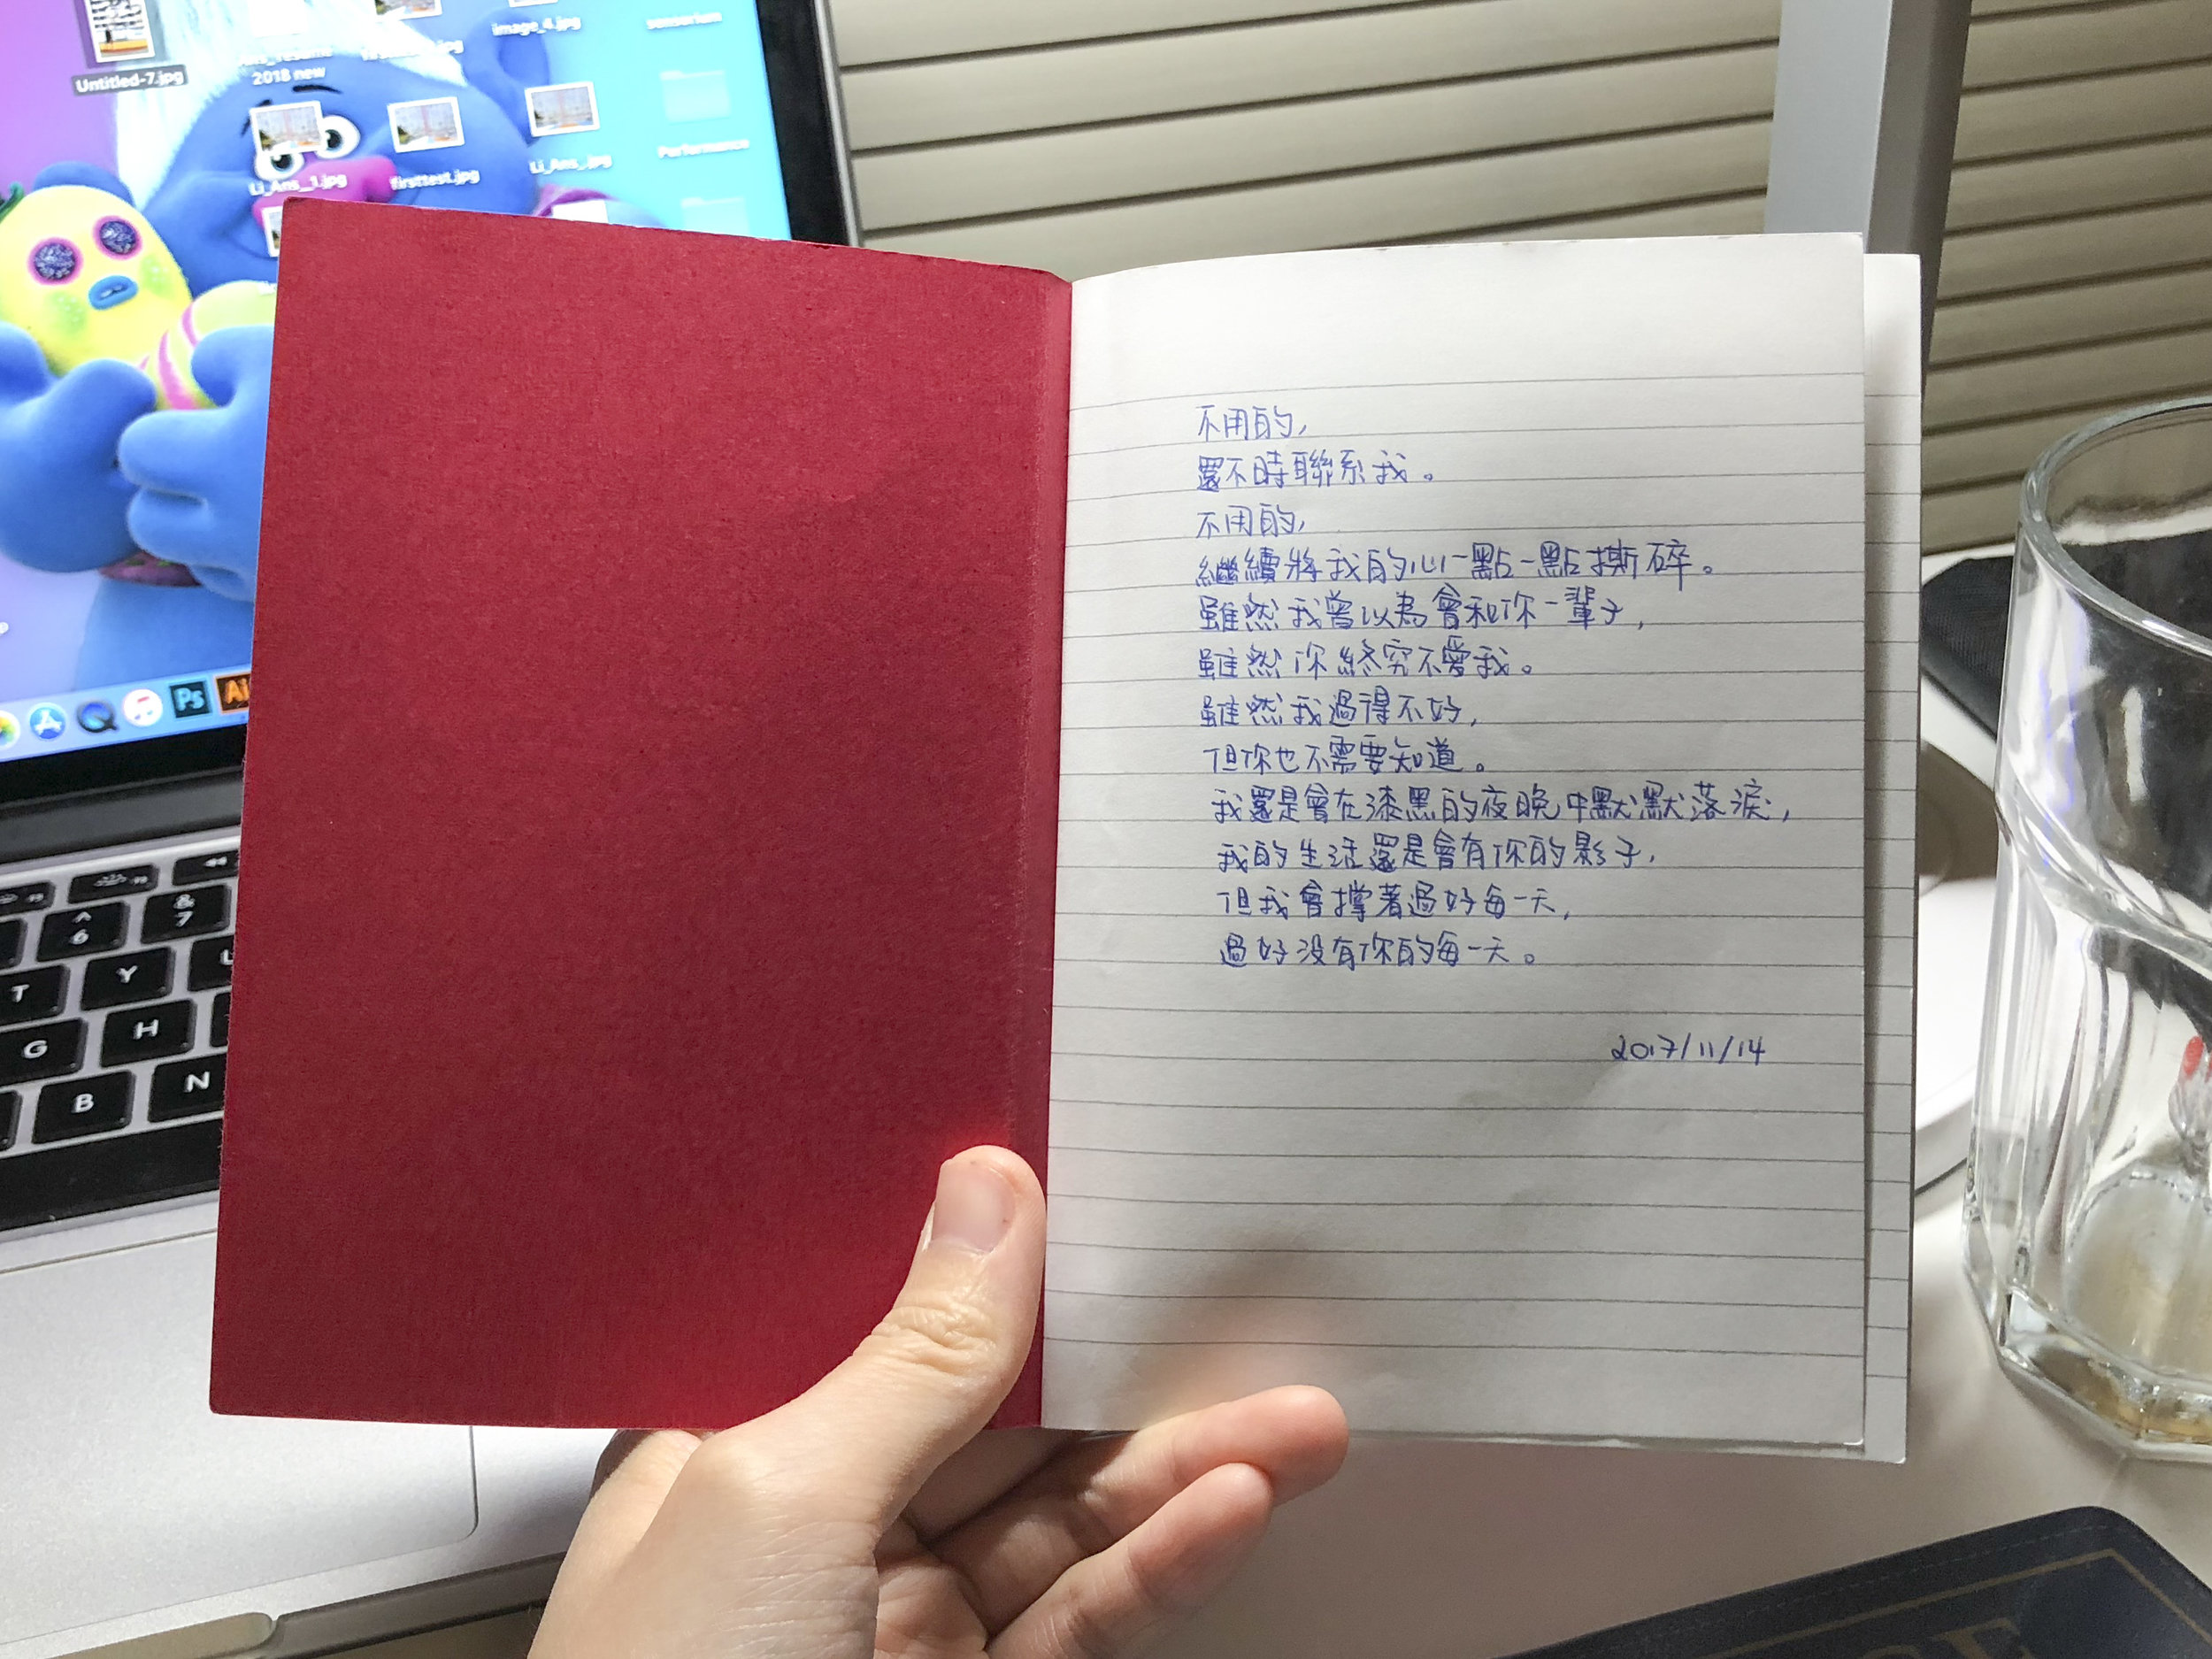 Untitled-7.jpg
2018 new
image_4.jpg
sensorium
Li_Ans_1.jpg
firsttest.jpg
Li_Ans_.jpg
Performance
Ps
Ai
&
7
^
6
T
Y
U
G
H
B
N
不用的,
還不時聯系我。
不用的,
繼續將我的心一點一點撕碎。
雖然我曾以為會和你一輩子,
雖然你終究不愛我。
雖然我過得不好,
但你也不需要知道。
我還是會在漆黑的夜晚中默默落淚,
我的生活還是會有你的影子,
但我會撐著過好每一天,
過好沒有你的每一天。
2017/11/14